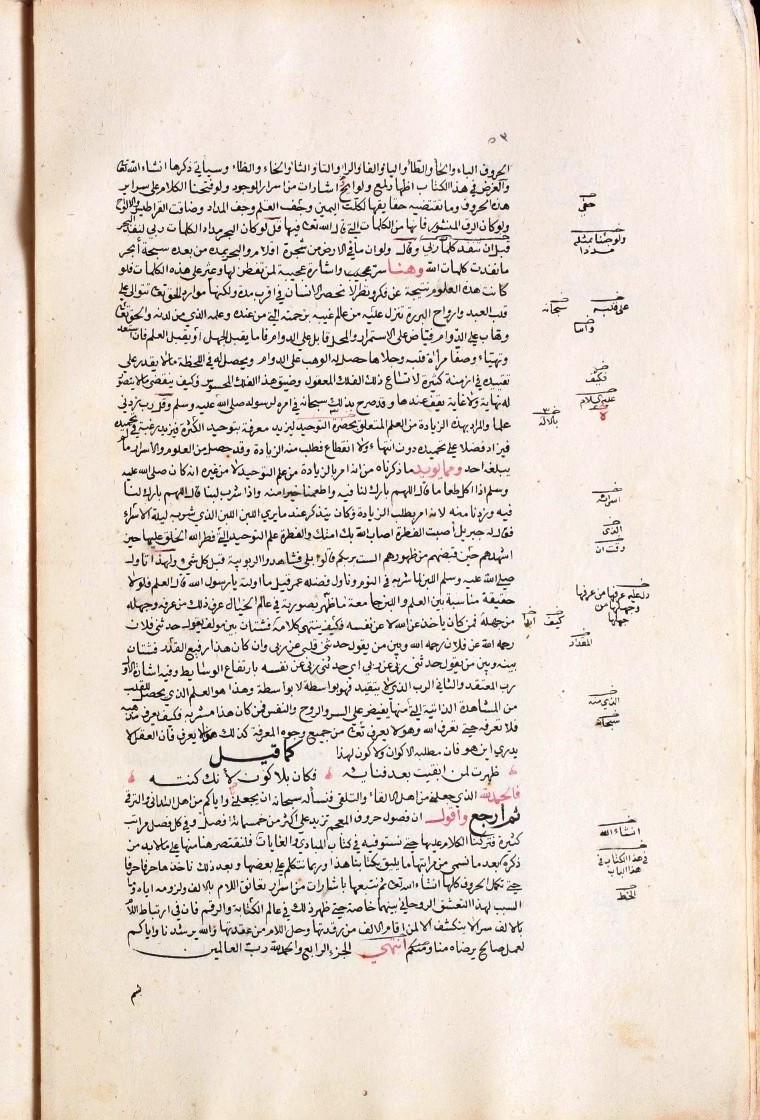 الحروف الباء والحا والطا واليا والفا والرا والتا والثا والخاء والظاء وسياتي ذكرها انشاء الله تعا
والغرض في هذا الكتاب اظهار لمع ولوايح اشارات من اسرار الوجود ولو فتحنا الكلام على سراير
هذه الحروف وما تقتضيه حقايقها لكلت اليمين وحفى القلم وجف المداد وضاقت القراطيس والالواح
ولو كان الرق المنشور فانها من الكلمات التي قال الله تعا فيها قل لو كان البحر مدادا لكلمات ربي لنفد البحر
قبل ان تنفد كلمات ربي وقال ولو ان ما في الارض من شجرة اقلام والبحر يمده من بعده سبعة ابحر
ما نفدت كلمات الله وهنا سر عجيب واشارة عجيبة لمن تفطن لها وعثر على هذه الكلمات فلو
كانت هذه العلوم نتيجة عن فكر ونظر لانحصر الانسان في اقرب مدة ولكنها موارد الحق تعا تتوالى على
قلب العبد وارواح البررة تنزل عليه من عالم غيبه برحمته التي من عنده وعلمه الذي من لدنه والحق تعا
وهاب على الدوام فياض على الاستمرار والمحل قابل على الدوام فاما يقبل الجهل او يقبل العلم فان استعد
وتهيا وصفا مراة قلبه وجلاها حصل له الوهب على الدوام ويحصل له في اللحظة ما لا يقدر على
تقييده في ازمنة كثيرة لاتساع ذلك الفلك المعقول وضيق هذا الفلك المحسوس وكيف ينقضي ما لا يتصور
له نهاية ولا غاية يقف عندها وقد صرح بذلك سبحانه في امره لرسوله صلى الله عليه وسلم وقل رب زدني
علما والمراد بهذه الزيادة من العلم المتعلق بحضرة التوحيد ليزيد معرفة بتوحيد الكثرة فيزيد رغبة في تحميده
فيزاد فضلا على تحميده دون انتهاء ولا انقطاع فطلب منه الزيادة وقد حصل من العلوم والاسرار ما لم
يبلغه احد ومما يويد ما ذكرناه من انه امر بالزيادة من علم التوحيد لا من غيره انه كان صلى الله عليه
وسلم اذا اكل طعاما قال اللهم بارك لنا فيه واطعمنا خيرا منه واذا شرب لبنا قال اللهم بارك لنا
فيه وزدنا منه لانه امر بطلب الزيادة وكان يتذكر عندما يري اللبن اللبن الذي شربه ليلة الاسراء
فقال له جبريل اصبت الفطرة اصاب الله بك امتك والفطرة علم التوحيد التي فطر الله الخلق عليها حين
اشهدهم حين قبضهم من ظهورهم الست بربكم قالوا بلى فشاهدوا الربوبية قبل كل شيء ولهذا تاول
صلى الله عليه وسلم اللبن لما شربه في النوم وناول فضله عمر قيل ما اولته يا رسول الله قال العلم فلولا
حقيقة مناسبة بين العلم واللبن جامعة ما ظهر بصورته في عالم الخيال عرف ذلك من عرفه وجهله
من جهله فمن كان ياخذ عن الله لا عن نفسه فكيف ينتهي كلامه فشتان بين مولف يقول حدثني فلان
رحمه الله عن فلان رحمه الله وبين من يقول حدثني قلبي عن ربي وان كان هذا رفيع القدر فشتان
بينه وبين من يقول حدثني ربي عن ربي اي حدثني ربي عن نفسه بارتفاع الوسايط وفيه اشارة الاول
رب المعتقد والثاني الرب الذي لا يتقيد فهو بواسطة لا بواسطة وهذا هو العلم الذي يحصل للقلب
من المشاهدة الذاتية التي منها يفيض على السر والروح والنفس فمن كان هذا مشربه فكيف يعرف مذهبه
فلا تعرفه حتى تعرف الله وهو لا يعرف تعا من جميع وجوه المعرفة كذلك هو لا يعرف فان العقل لا
يدري اين هو فان مطلبه الاكوان ولا كون لهذا كما قيل
ظهرت لمن ابقيت بعد فنائه فكان بلا كون لانك كنته
فالحمد لله الذي جعلني من اهل الالقاء والتلقي فنساله سبحانه ان يجعلني واياكم من اهل التداني والترقي
ثم ارجع واقول ان فصول حروف المعجم تزيد على اكثر من خمسمائة فصل وفي كل فصل مراتب
كثيرة فتركنا الكلام عليها حتى نستوفيه في كتاب المبادي والغايات فلنقتصر هنا منها على ما لابد من
ذكره بعد ما نسمي من مراتبها ما يليق بكتابنا هذا وربما نتكلم على بعضها وبعد ذلك ناخذها حرفا حرفا
حتى تكمل الحروف كلها انشاء الله تعا ثم نتبعها باشارات من اسرار تعانق اللام بالالف ولزومه اياه وما
السبب لهذا التعشق الروحاني بينهما خاصة حتى ظهر ذلك في عالم الكتابة والرقم فان في ارتباط اللام
بالالف سرا لا ينكشف الا لمن اقام الالف من رقدتها وحل اللام من عقدتها والله يرشدنا واياكم
لعمل صالح يرضاه منا ومنكم انتهى الجزء الرابع والحمد لله رب العالمين
حفي
ولو جئنا بمثله
مددا
على قلبه
سبحانه
واما
فكيف
عليه السلام
بالاله
اسرائه
الذي
وقت ان
دل عليه عرفها من عرفها
وجهلها من
جهلها
كيف
المقدار
الذي منه
سبحانه
انشاء الله
في هذا الكتاب في
هذا الباب
الخط
بسم